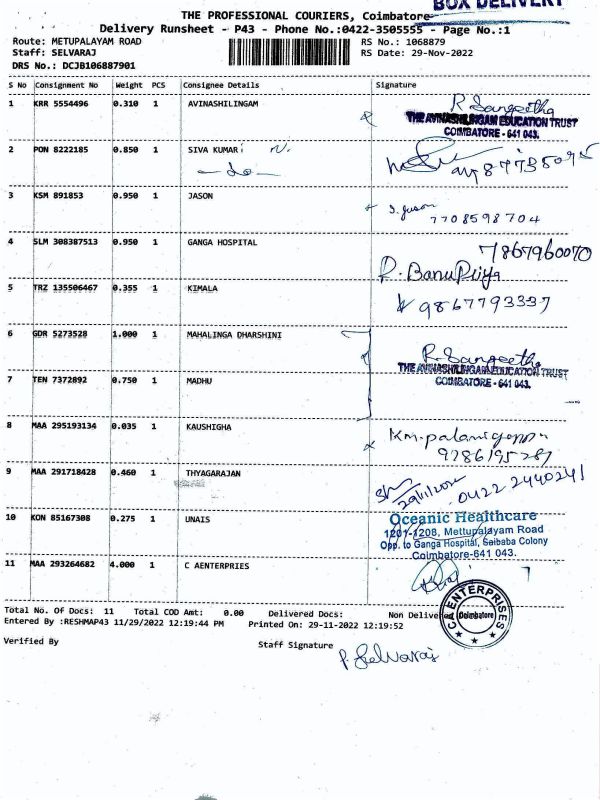 BOX DELIVERY
THE PROFESSIONAL COURIERS, Coimbatore
Delivery Runsheet - P43 - Phone No.:0422-3505555 - Page No.:1
Route: METUPALAYAM ROAD RS No.: 1068879
Staff: SELVARAJ RS Date: 29-Nov-2022
DRS No.: DCJB106887901
S No Consignment No Weight PCS Consignee Details Signature
1 KRR 5554496 0.310 1 AVINASHILINGAM R. Sangeetha
THE AVINASHILINGAM EDUCATION TRUST
COIMBATORE - 641 043.
2 PON 8222185 0.850 1 SIVA KUMAR N.
- do -
3 KSM 891853 0.950 1 JASON S. Jason
7708598704
4 SLM 308387513 0.950 1 GANGA HOSPITAL 7867960070
R. Banu Priya
5 TRZ 135506467 0.355 1 KIMALA
9867793337
6 GDR 5273528 1.000 1 MAHALINGA DHARSHINI R. Sangeetha
THE AVINASHILINGAM EDUCATION TRUST
COIMBATORE - 641 043.
7 TEN 7372892 0.750 1 MADHU
8 MAA 295193134 0.035 1 KAUSHIGHA
9786195287
9 MAA 291718428 0.460 1 THYAGARAJAN
29/11/2022 0422 2440241
10 KON 85167308 0.275 1 UNAIS Oceanic Healthcare
1207-1208, Mettupalayam Road
Opp. to Ganga Hospital, Saibaba Colony
Coimbatore-641 043.
11 MAA 293264682 4.000 1 C AENTERPRIES
CA ENTERPRISES
Coimbatore
Total No. Of Docs: 11 Total COD Amt: 0.00 Delivered Docs: Non Delivered
Entered By :RESHMAP43 11/29/2022 12:19:44 PM Printed On: 29-11-2022 12:19:52
Verified By Staff Signature
P. Selvaraj